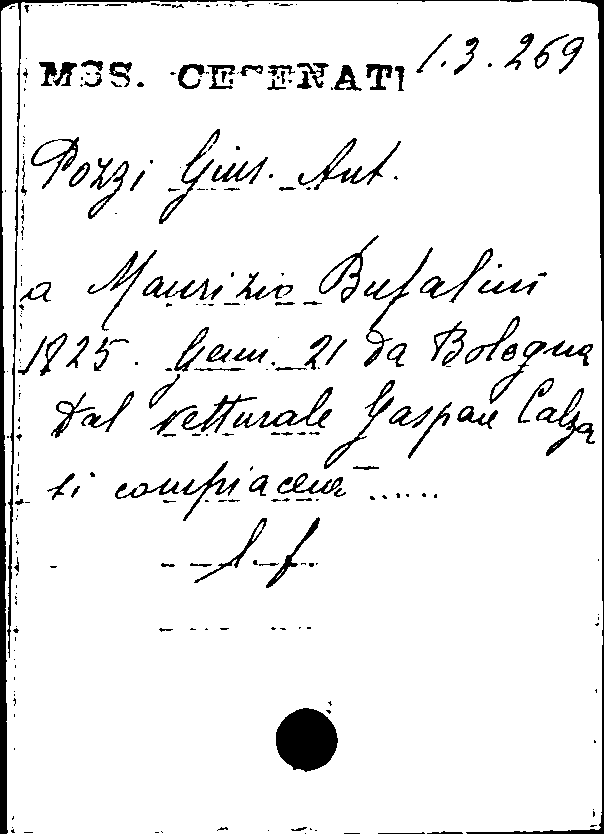 MSS. CESENATI 1.3.269
Pozzi Gius. Ant.
a Maurizio Bufalini
1825. Genn. 21 da Bologna
Dal vetturale Gaspare Calza
si compiacerà ......
l. f.